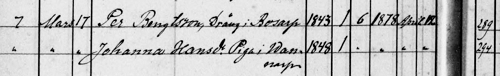 7 Mars 17 Per Bengtsson, Dräng i Rosarp 1843 1 6 1878 April 12 289
" " " Johanna Hansdr Piga i Wan- 1848 1 " " " " 294
narp